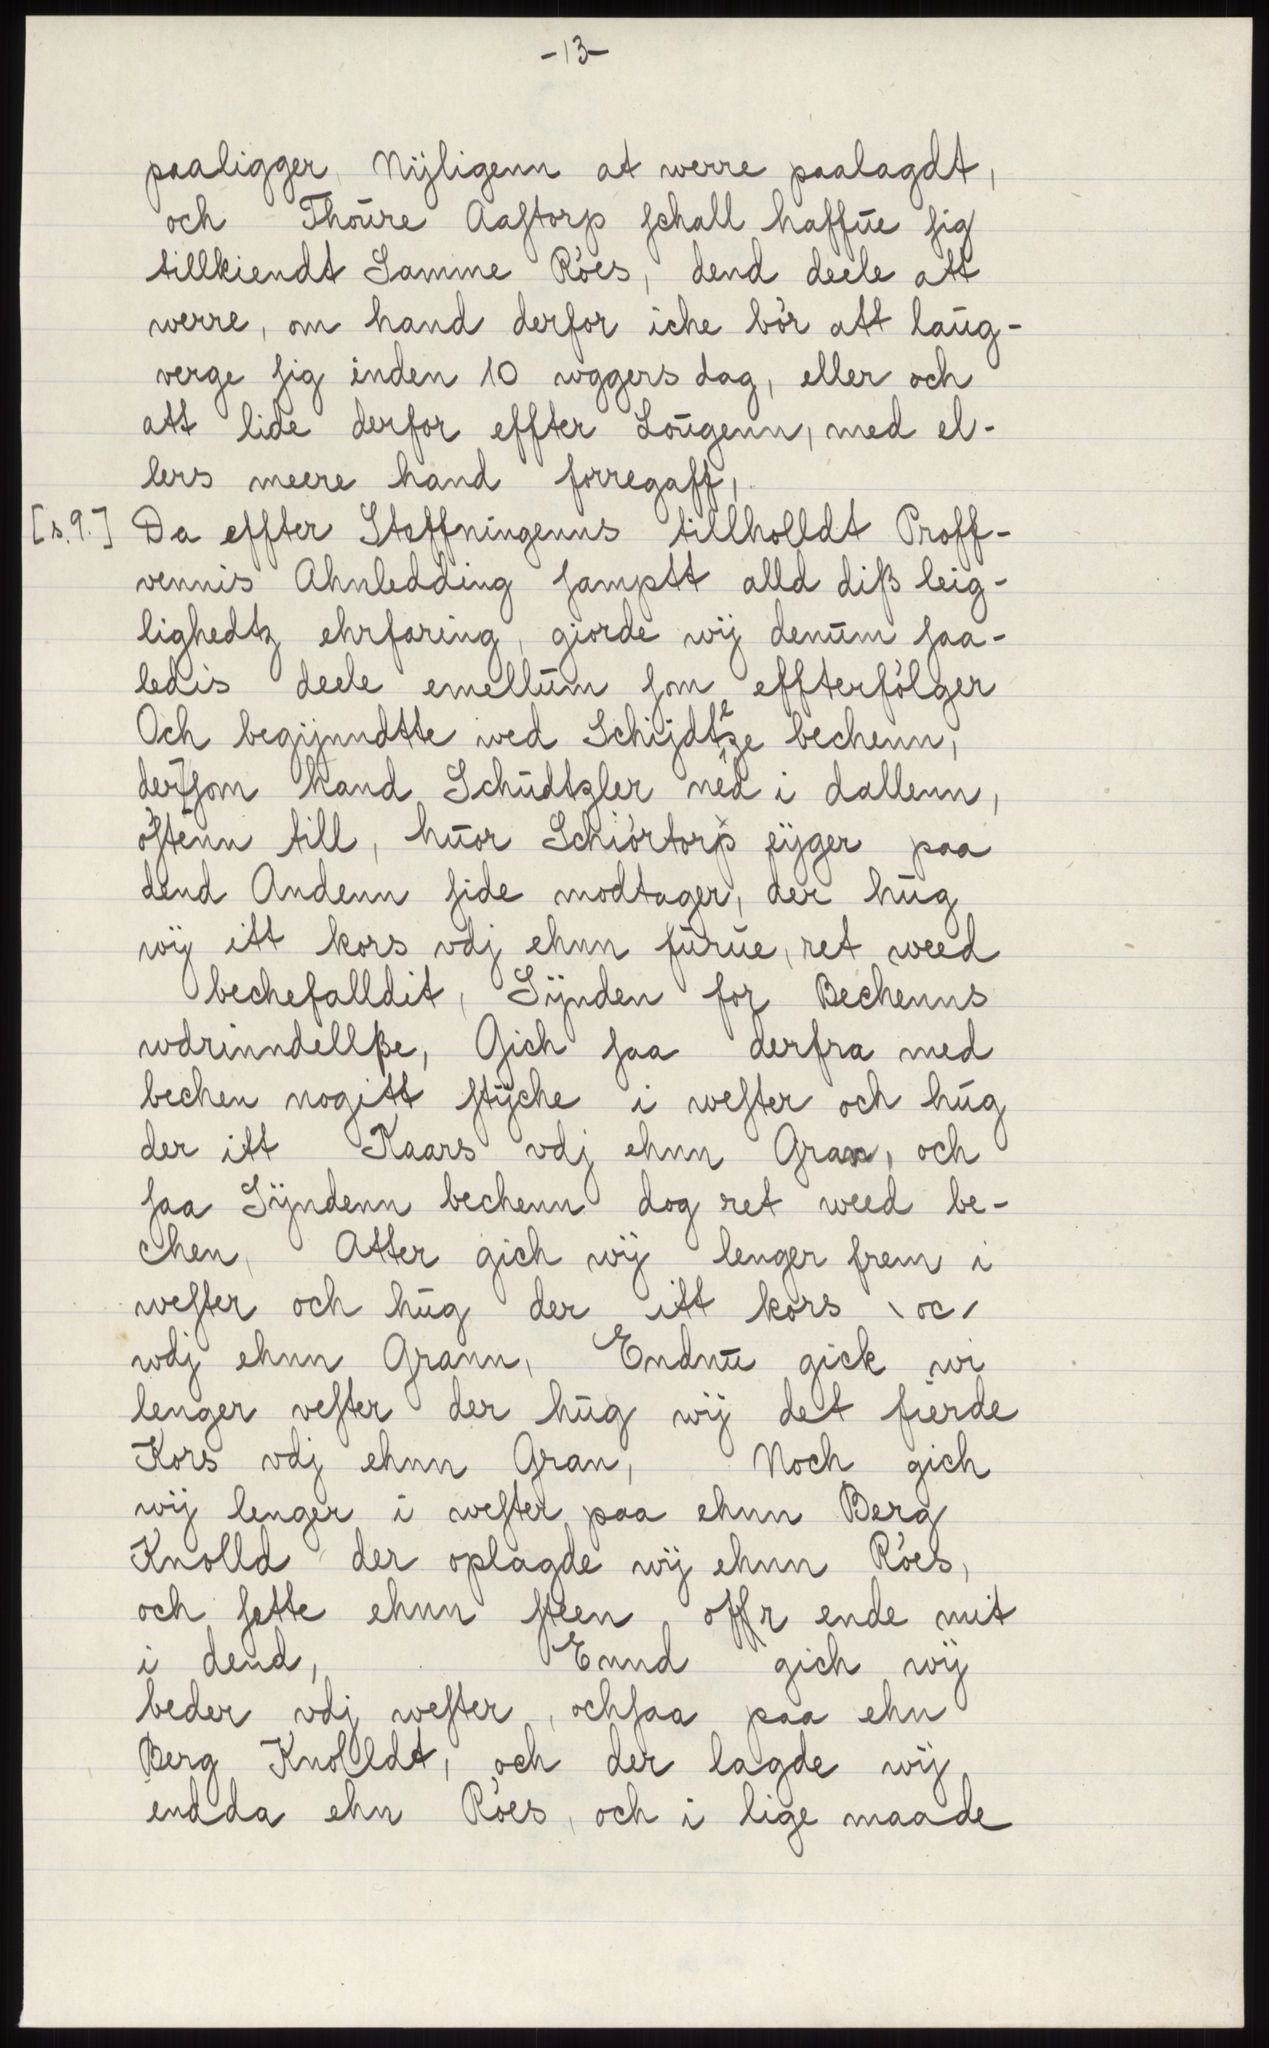 -13-
paaligger, Nÿligenn at werre paalagdt,
och Thoūre Aaſtorp ſchall haffūe ſig
tillkiendt Samme Röes, dend deele att
werre, om hand derfor iche bör att laūg-
verge ſig inden 10 wggers dag, eller och
att lide derfor effter Loūgenn, med el-
lers meere hand forregaff,
[s. 9.] Da effter Steffningenns tillholldt Proff-
vennis Ahnledding ſamptt alld diß leig-
lighedtz ehrfaring, giorde wÿ denūm ſaa-
ledis deele emellūm ſom effterfölger
Och begÿnndtte wed Schÿdtzge bechenn,
derſom hand Schūdtzler néd i dallenn,
öſtenn till, hūor Schiörtorp eÿger paa
dend Andenn ſide modtager, der hūg
wÿ itt kors vdj ehnn fūrūe, ret weed
bechefalldit, Sÿnden for Bechenns
wdrinndellße, Gich ſaa derfra med
bechen nogitt ſtÿche i weſter och hūg
der itt Kaars vdj ehnn Gran, och
ſaa Sÿndenn bechenn dog ret weed be-
chen, Atter gich wÿ lenger frem i
weſter och hūg der itt kors \oc/
wdj ehnn Grann, Endnū gick wi
lenger veſter der hūg wÿ det fierde
Kors vdj ehnn Gran, Noch gich
wÿ lenger i weſter paa ehnn Berg
Knolld der oplagde wÿ ehnn Röes,
och ſette ehnn ſteen offr ende mit
i dend, Ennd gich wÿ
beder vdj weſter, ochſaa paa ehn
Berg Knolldt, och der lagde wÿ
endda ehn Röes, och i lige maade